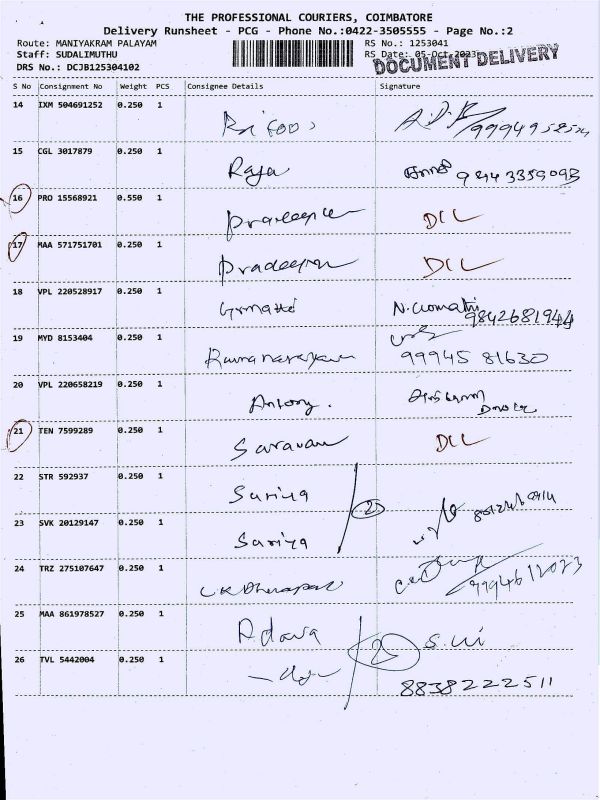 THE PROFESSIONAL COURIERS, COIMBATORE
Delivery Runsheet - PCG - Phone No.:0422-3505555 - Page No.:2
Route: MANIYAKRAM PALAYAM RS No.: 1253041
Staff: SUDALIMUTHU RS Date: 05-Oct-2023
DRS No.: DCJB125304102 DOCUMENT DELIVERY
S No Consignment No Weight PCS Consignee Details Signature
14 IXM 504691252 0.250 1
15 CGL 3017879 0.250 1 Raja
16 PRO 15568921 0.550 1 Pradeepa DCL
17 MAA 571751701 0.250 1 Pradeepa DCL
18 VPL 220528917 0.250 1 Gomathi N. Gomathi
9842681944
19 MYD 8153404 0.250 1 Ramanarayanan 99945 81630
20 VPL 220658219 0.250 1 Antony.
21 TEN 7599289 0.250 1 Saravan DCL
22 STR 592937 0.250 1 Suriya 2
23 SVK 20129147 0.250 1 Suriya
24 TRZ 275107647 0.250 1
25 MAA 861978527 0.250 1 Adava 2
26 TVL 5442004 0.250 1 8838222511